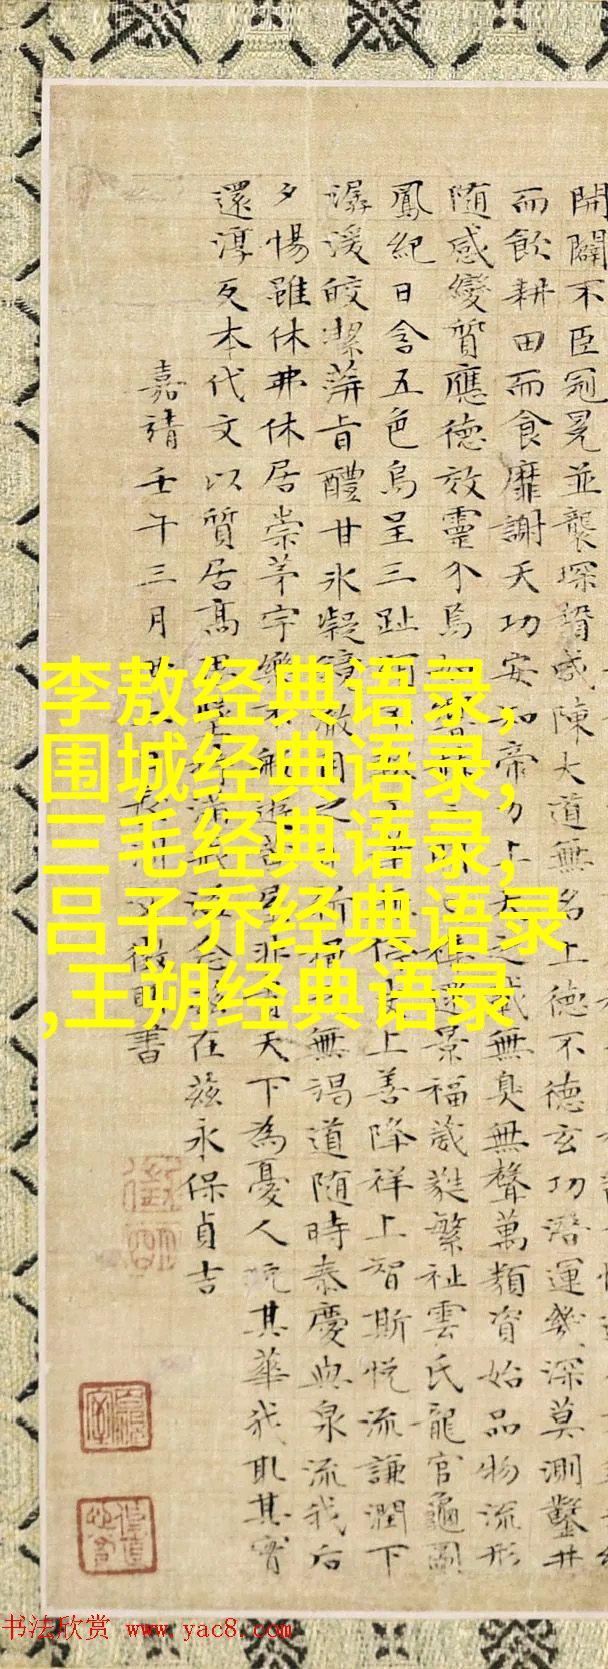 開闢不臣冠冕並襲琛贄咸陳大道無名上德不德玄功潛運幾深莫測鑿井
而飲耕田而食靡謝天功安知帝力上天之載無臭無聲萬類資始品物流形
随感變質應德效靈介焉如遝景福葳蕤繁祉雲氏龍官龜圖
鳳紀日含五色烏呈三趾上善降祥上智斯悅流謙潤下
潺湲皎潔蓱旨醴甘氷凝鏡澈用之無竭道随時泰慶與泉流我后
夕惕雖休弗休居崇茅宇樂般遊非貴天下為憂人玩其華我取其實
還淳反本代文以質居高思滿在茲永保貞吉
嘉靖壬午三月徵明書
李敖经典语录,
围城经典语录,
三毛经典语录,
吕子乔经典语录
,王朔经典语录
书法欣赏 www.yac8.com